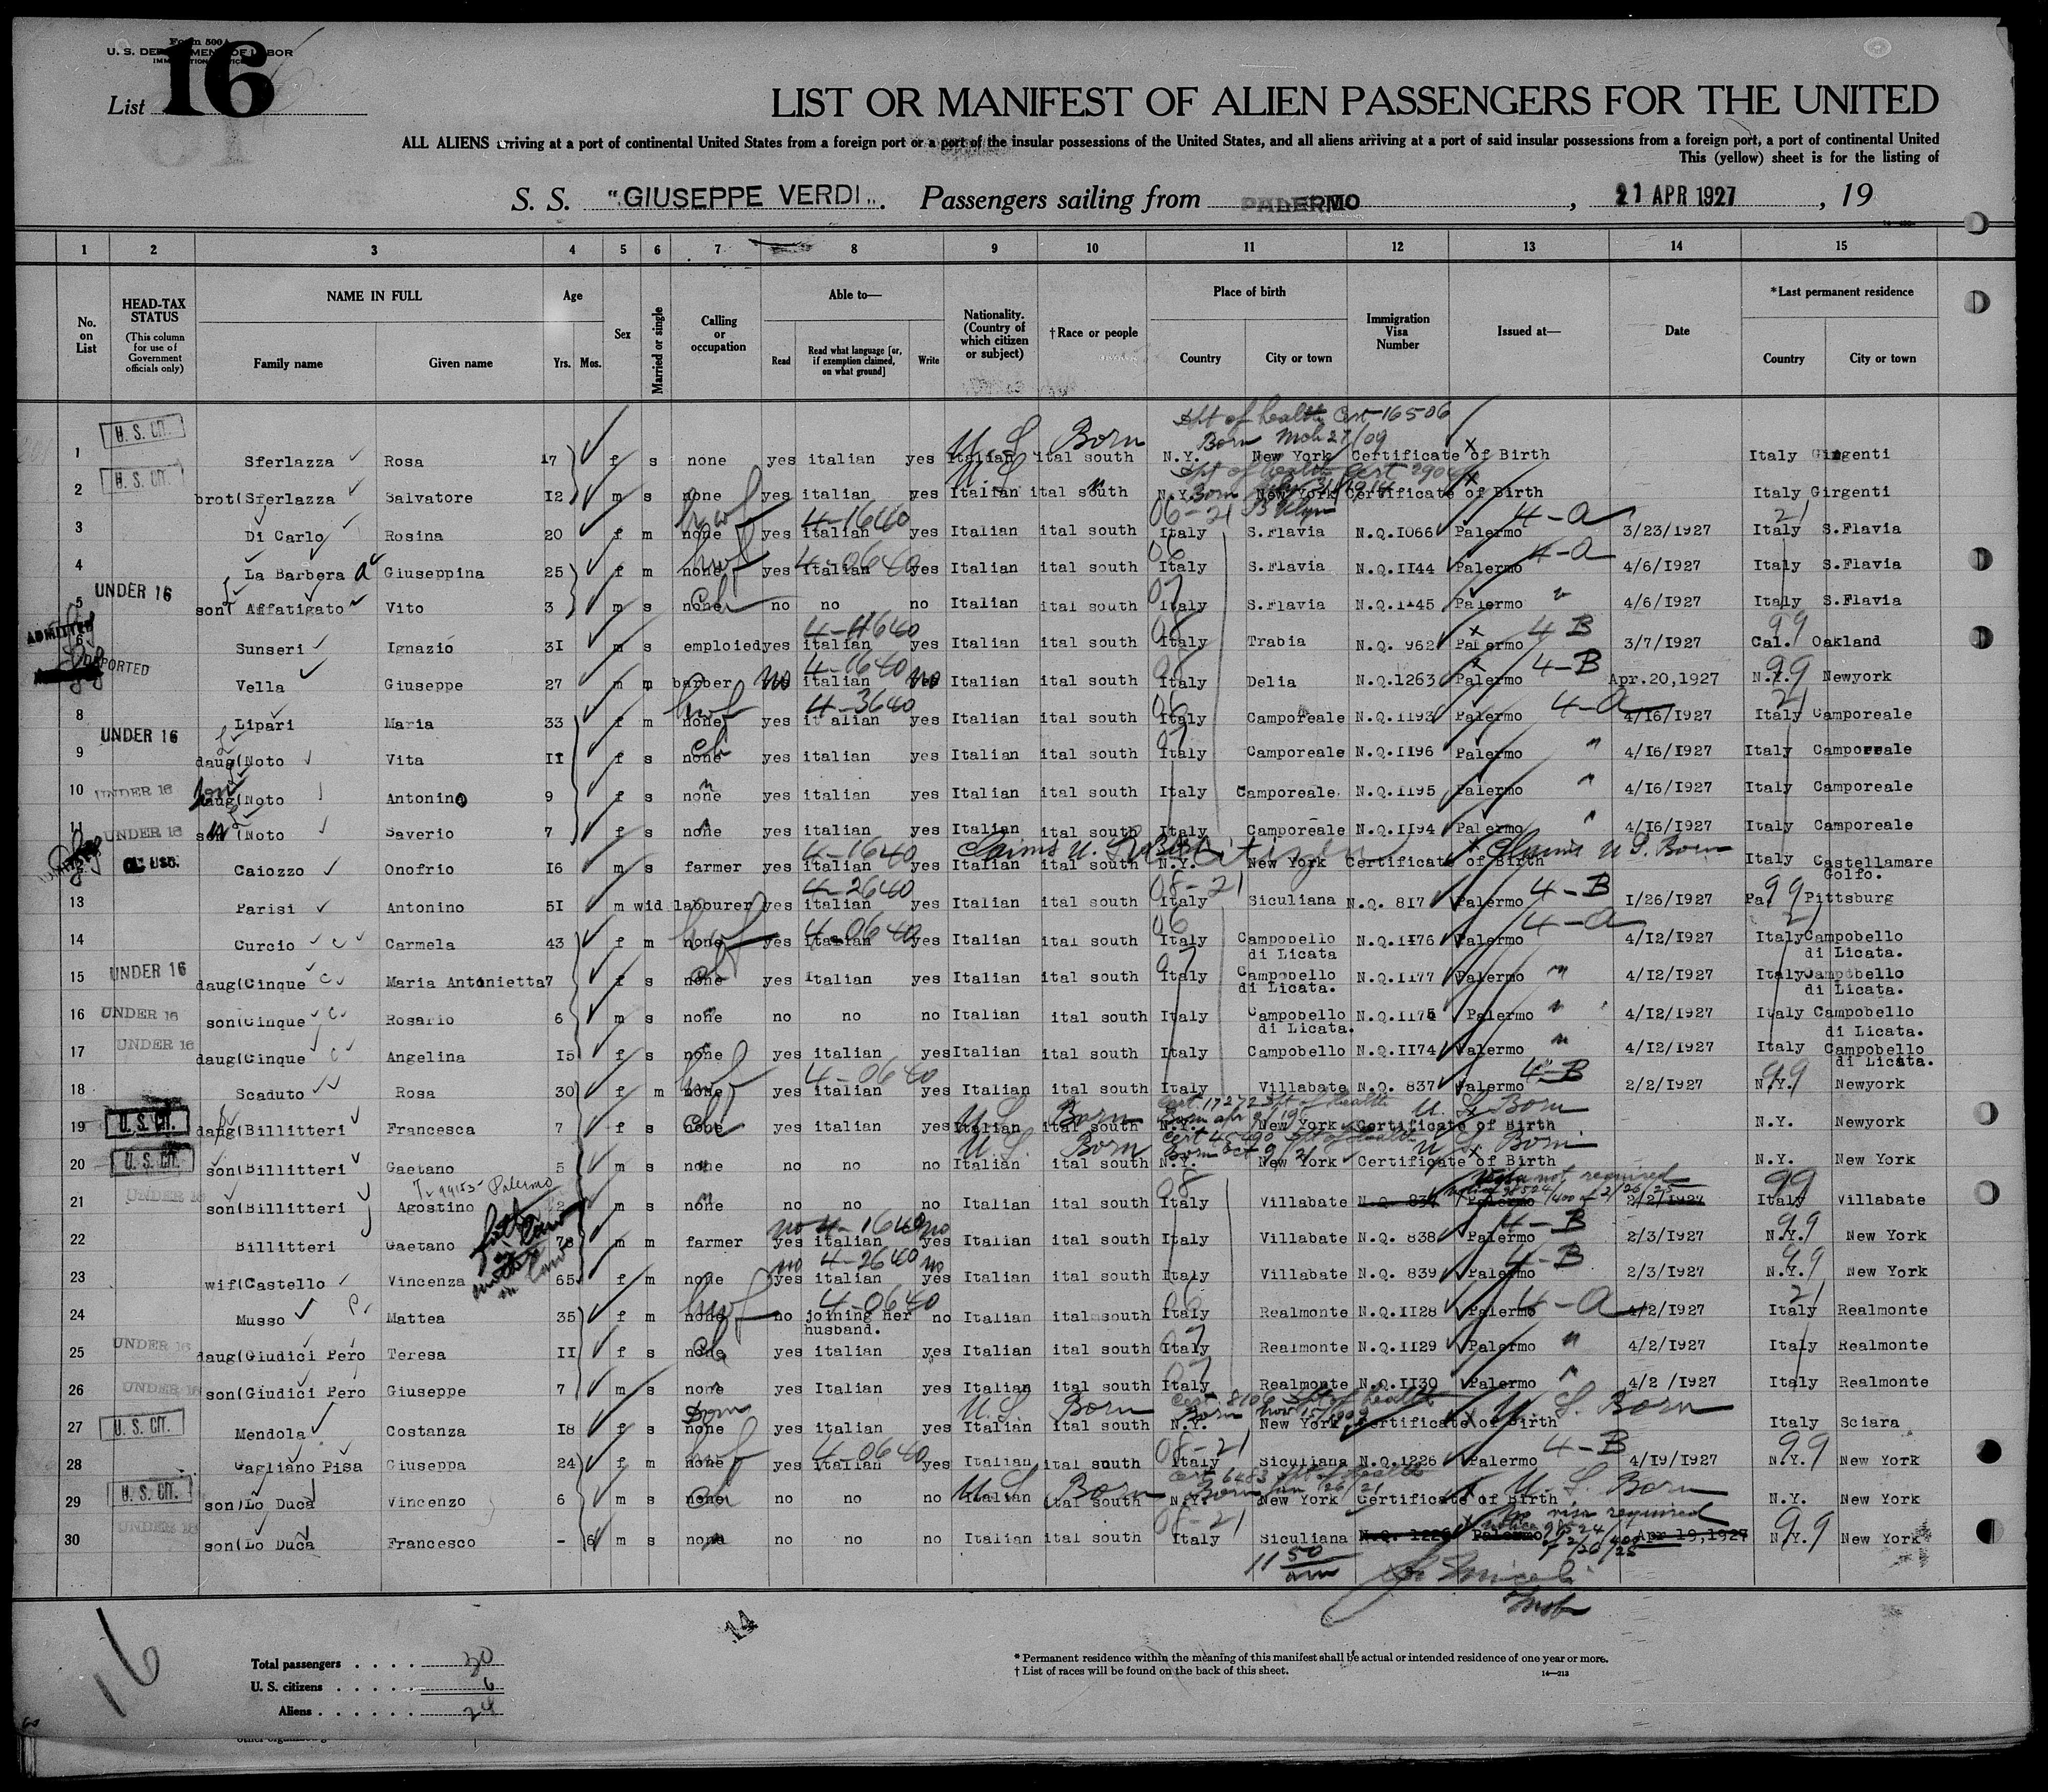 Form 500A
U. S. DEPARTMENT OF LABOR
List 16
LIST OR MANIFEST OF ALIEN PASSENGERS FOR THE UNITED
ALL ALIENS arriving at a port of continental United States from a foreign port or a port of the insular possessions of the United States, and all aliens arriving at a port of said insular possessions from a foreign port, a port of continental United
This (yellow) sheet is for the listing of
S. S. "GIUSEPPE VERDI". Passengers sailing from PALERMO, 21 APR 1927, 19
1 2 3 4 5 6 7 8 9 10 11 12 13 14 15
No. on List
HEAD-TAX STATUS (This column for use of Government officials only)
NAME IN FULL
Family name Given name
Age
Yrs. Mos.
Sex
Married or single
Calling or occupation
Able to—
Read Read what language [or, if exemption claimed, on what ground] Write
Nationality. (Country of which citizen or subject)
†Race or people
Place of birth
Country City or town
Immigration Visa Number
Issued at—
Date
*Last permanent residence
Country City or town
U. S. CIT. U S Born Dpt of health Cert 16506
Born Mch 27/09
1 Sferlazza Rosa 17 f s none yes italian yes Italian ital south N.Y. New York Certificate of Birth Italy Girgenti
U. S. CIT. U S Dpt of health Cert
2 brot(Sferlazza Salvatore I2 m s none yes italian yes Italian ital south N.Y. New York Certificate of Birth Italy Girgenti
hwf 4-1640 06-21 Bklyn 4-a 21
3 Di Carlo Rosina 20 f m none yes italian yes Italian ital south Italy S.Flavia N.Q.I066 Palermo 3/23/1927 Italy S.Flavia
hwf 4-0640 06 4-a
4 La Barbera Giuseppina 25 f m none yes italian yes Italian ital south Italy S.Flavia N.Q.II44 Palermo 4/6/I927 Italy S.Flavia
UNDER 16 ch 07
5 son( Affatigato Vito 3 m s none no no no Italian ital south Italy S.Flavia N.Q.1145 Palermo " 4/6/I927 Italy S.Flavia
ADMITTED 08 4 B 99
6 Sunseri Ignazio 3I m s emploied yes italian yes Italian ital south Italy Trabia N.Q. 962 Palermo 3/7/I927 Cal. Oakland
DEPORTED no 4-1640 no 4-B 99
Vella Giuseppe 27 m m barber italian Italian ital south Italy Delia N.Q.1263 Palermo Apr.20,1927 N.Y. Newyork
hwf 4-3640 06 4-a 21
8 Lipari Maria 33 f m none yes it alian yes Italian ital south Italy Camporeale N.Q.II93 Palermo 4/I6/I927 Italy Camporeale
UNDER 16 ch 07
9 daug(Noto Vita II f s none yes italian yes Italian ital south Italy Camporeale N.Q.II96 Palermo " 4/I6/I927 Italy Camporeale
UNDER 16 son
10 daug(Noto Antonino 9 f s none yes italian yes Italian ital south Italy Camporeale N.Q.II95 Palermo " 4/I6/I927 Italy Camporeale
UNDER 16
11 son (Noto Saverio 7 f s none yes italian yes Italian ital south Italy Camporeale N.Q.II94 Palermo " 4/I6/I927 Italy Camporeale
4-1640 Claims U. S. Claims U S. Born
Caiozzo Onofrio I6 m s farmer yes italian yes Italian ital south N.Y. New York Certificate of Birth Italy Castellamare Golfo.
4-2640 08-21 4-B 99
13 Parisi Antonino 5I m wid labourer yes italian yes Italian ital south Italy Siculiana N.Q. 8I7 Palermo I/26/I927 Pa. Pittsburg
hwf 4-0640 06 4-a 21
14 Curcio Carmela 43 f m none yes italian yes Italian ital south Italy Campobello di Licata N.Q.II76 Palermo 4/I2/I927 Italy Campobello di Licata.
UNDER 16 ch 07
15 daug(Cinque Maria Antonietta 7 f s none yes Italian yes Italian ital south Italy Campobello di Licata. N.Q.II77 Palermo " 4/I2/I927 Italy Campobello di Licata.
UNDER 16
16 son(Cinque Rosario 6 m s none no no no Italian ital south Italy Campobello di Licata. N.Q.II75 Palermo " 4/I2/I927 Italy Campobello di Licata.
UNDER 16
17 daug(Cinque Angelina I5 f s none yes italian yes Italian ital south Italy Campobello N.Q.II74 Palermo " 4/I2/I927 Italy Campobello di Licata.
hwf 4-0640 4-B 99
18 Scaduto Rosa 30 f m none yes italian yes Italian ital south Italy Villabate N.Q. 837 Palermo 2/2/I927 N.Y. Newyork
U. S. CIT. ch U S. Born Cert. 17272 Dpt of health U. S. Born
19 daug(Billitteri Francesca 7 f s none yes italian yes Italian ital south N.Y. New York Certificate of Birth N.Y. Newyork
U. S. CIT. U S. Born Cert 45490 Dpt of health Born Oct 9/21 U S. Born
20 son(Billitteri Gaetano 5 m s none no no no Italian ital south N.Y. New York Certificate of Birth N.Y. New York
UNDER 16 Palermo 08 Visa not required 99
21 son(Billitteri Agostino m s none no no no Italian ital south Italy Villabate N.Q. 837 Palermo 2/2/1927 Italy Villabate
father in law no 4-1640 no 4-B 99
22 Billitteri Gaetano 78 m m farmer yes italian yes Italian ital south Italy Villabate N.Q. 838 Palermo 2/3/I927 N.Y. New York
mother in law no 4-2640 no 4-B 99
23 wif(Castello Vincenza 65 f m none yes italian yes Italian ital south Italy Villabate N.Q. 839 Palermo 2/3/I927 N.Y. New York
hwf 4-0640 06 4-a 21
24 Musso Mattea 35 f m none no joining her husband. no Italian ital south Italy Realmonte N.Q.II28 Palermo 4/2/I927 Italy Realmonte
UNDER 16 ch 07
25 daug(Giudici Pero Teresa II f s none yes italian yes Italian ital south Italy Realmonte N.Q.II29 Palermo " 4/2/I927 Italy Realmonte
UNDER 16 07
26 son(Giudici Pero Giuseppe 7 m s none yes Italian yes Italian ital south Italy Realmonte N.Q.II30 Palermo " 4/2 /I927 Italy Realmonte
U. S. CIT. Dom U.S. Born Cert. 8106 Dpt of health Born Nov 15/1908 U. S. Born
27 Mendola Costanza I8 f s none yes italian yes Italian ital south N.Y. New York Certificate of Birth Italy Sciara
hwf 4-0640 08-21 4-B 99
28 Gagliano Pisa Giuseppa 24 f m none yes italian yes Italian ital south Italy Siculiana N.Q.1226 Palermo 4/I9/I927 N.Y. New York
U. S. CIT. ch U S Born Cert 6483 Dpt of health Born Jan 26/21 U. S. Born
29 son(Lo Duca Vincenzo 6 m s none no no no Italian ital south N.Y. New York Certificate of Birth N.Y. New York
UNDER 16 08-21 No visa required 99
30 son(Lo Duca Francesco - 6 m s none no no no Italian ital south Italy Siculiana N.Q. 1226 Palermo Apr 19,1927 N.Y. New York
11 50 am
16
14
Total passengers . . . . 30
U. S. citizens . . . . . 6
Aliens . . . . . . 24
* Permanent residence within the meaning of this manifest shall be actual or intended residence of one year or more.
† List of races will be found on the back of this sheet. 14—213